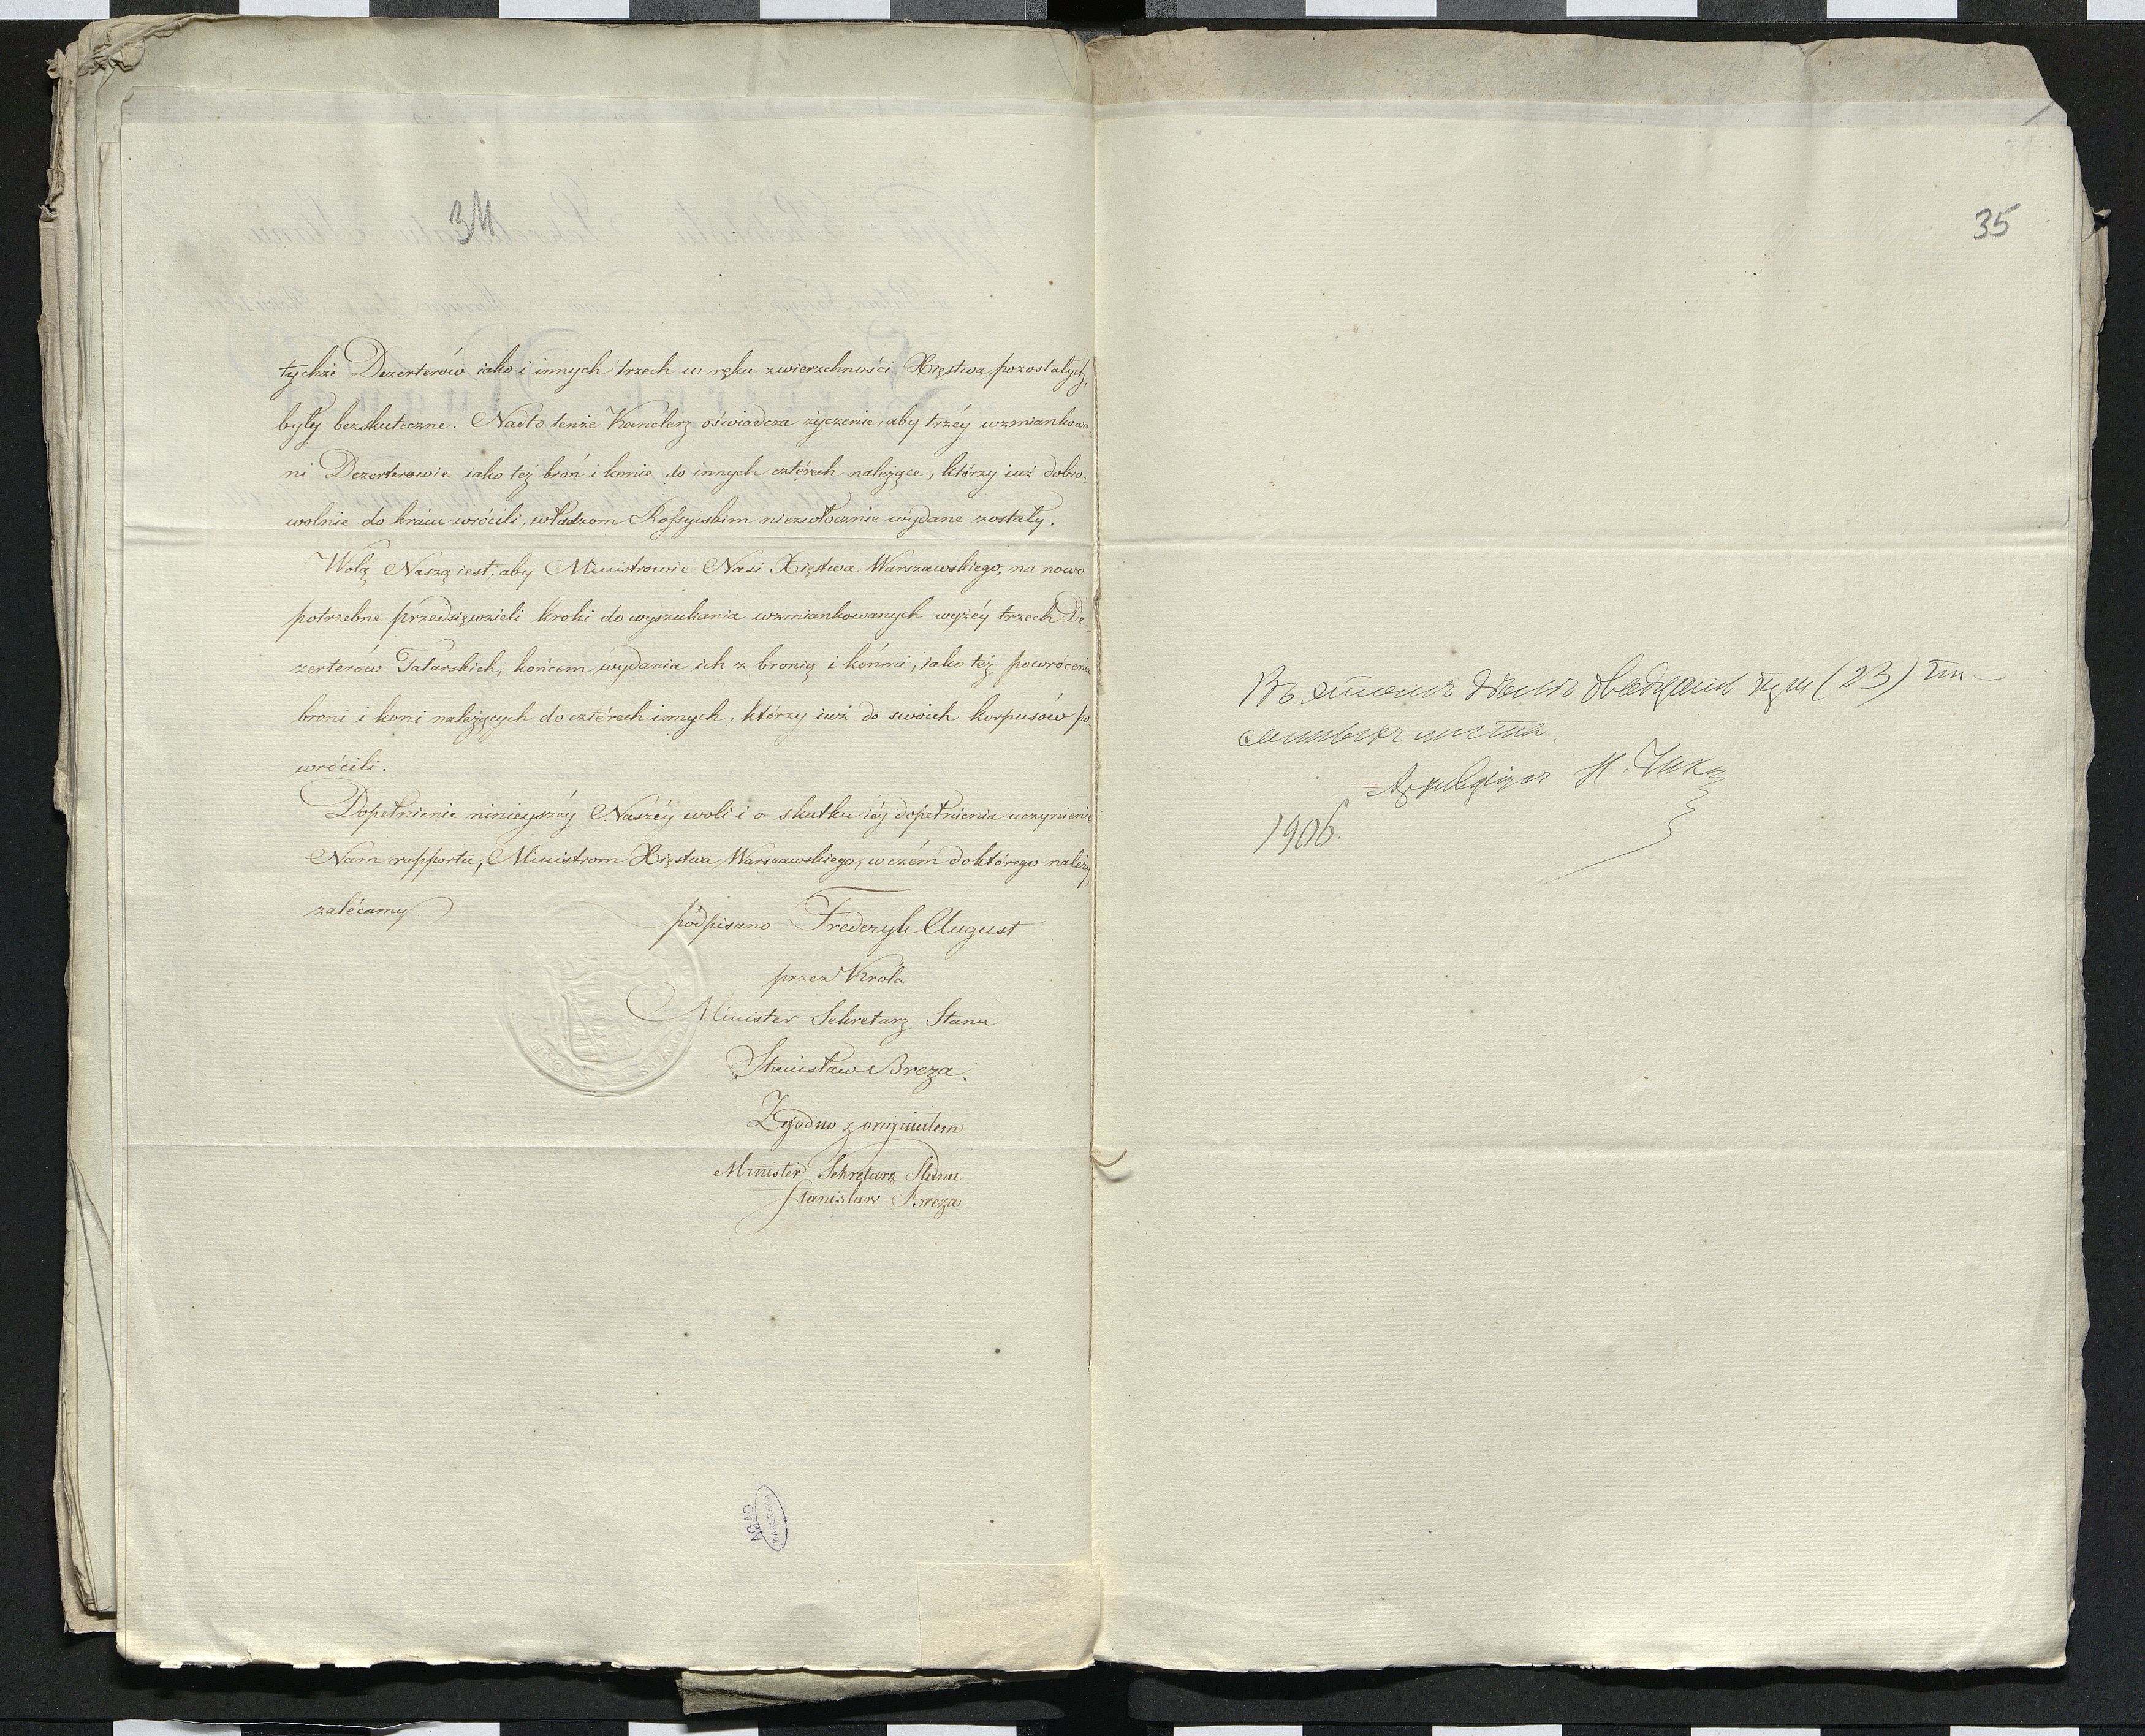 34
tychże Dezerterów iako i innych trzech w ręku zwierzchności Xięstwa pozostałych,
były bezskuteczne. Nadto tenże Kanclerz oświadcza życzenie, aby trzéy wzmiankowa-
ni Dezerterowie iako też broń i konie do innych cztérech należące, którzy iuż dobro-
wolnie do kraiu wrócili, władzom Rossyiskim niezwłocznie wydane zostały.
Wolą Naszą iest, aby Ministrowie Nasi Xięstwa Warszawskiego, na nowo
potrzebne przedsięwzieli kroki do wyszukania wzmiankowanych wyżéy trzech De-
zerterów Tatarskich, końcem wydania ich z bronią i końmi, iako też powrócenia
broni i koni należących do cztérech innych, którzy iuż do swoich korpusów po-
wrócili.
Dopełnienie ninieyszéy Naszéy woli i o skutku iéy dopełnienia uczynienie
Nam rapportu, Ministrom Xięstwa Warszawskiego, w czém do którego należy,
zalécamy.
podpisano Frederyk August
przez Króla
Minister Sekretarz Stanu
Stanisław Breza.
Zgodno z originałem
Minister Sekretarz Stanu
Stanisław Breza
AGAD
WARSZAWA
35
Въ этомъ дѣлѣ двадцать три (23) пи-
санныхъ листа.
Архиваріусъ
1906.